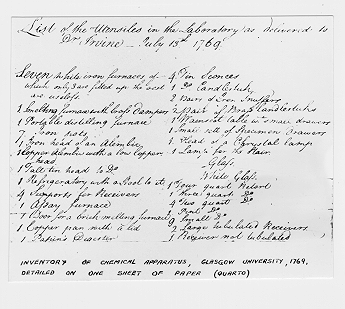 List of the Utensiles in the Laboratory as delivered to
Dr Irvine July 13th 1769
Seven white iron furnaces of
which only 3 are fitted up the rest
are useless
1 Smelting furnace with
1 Portable distilling furnace
7 Iron pots
1 Iron head of an Alembic
1 Copper Alembic with a low Copper
head
1 Tall tin head to Do
1 Refrigeratory with a
Supports for Receivers
1 Assay furnace
1 Door for a brick melting furnace
1 Copper pan with a lid
1 Papin's Digester
4 Tin Sconces
1 Do Candlestick
2 Pairs of Iron Snuffers
2 Pair of Brass Candlesticks
1 Wainscot table with drawers
1 Small set of Specimen drawers
1 Head of a Chrystal Lamp
1 Lamp for the Stair
Glass
White Glass
1 Four quart Retort
1 Three quart Do
4 Two quart Do
9 Small Do
2 Large tubulated Receivers
1 Receiver not tubulated
INVENTORY OF CHEMICAL APPARATUS, GLASGOW UNIVERSITY, 1769,
DETAILED ON ONE SHEET OF PAPER (QUARTO)